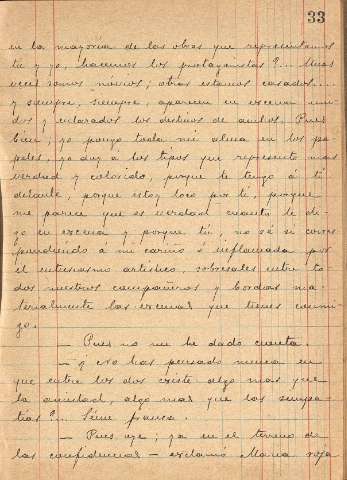 33
en la mayoria de las obras que representamos
tú y yo, hacemos los protagonistas?... Unas
veces somos novios; otras estamos casados....
y siempre, siempre, aparecen en escena uni-
dos y enlazados los destinos de ambos. Pues
bien; yo pongo toda mi alma en los pa-
peles, yo doy á los tipos que represento mas
verdad y colorido, porque te tengo á ti
delante, porque estoy loco por ti, porque
me parece que es verdad cuanto te di-
go en escena y porque tú, no sé si corres
pondiendo á mi cariño ó inflamada por
el entusiasmo artístico, sobresales entre to-
dos nuestros compañeros y bordas ma-
terialmente las escenas que tienes conmi-
go.
— Pues no me he dado cuenta.
— ¿Y no has pensado nunca en
que entre los dos existe algo mas que
la amistad, algo mas que las simpa-
tias?... Séme franca.
— Pues oye; ya en el terreno de
las confidencias — exclamó Maria roja